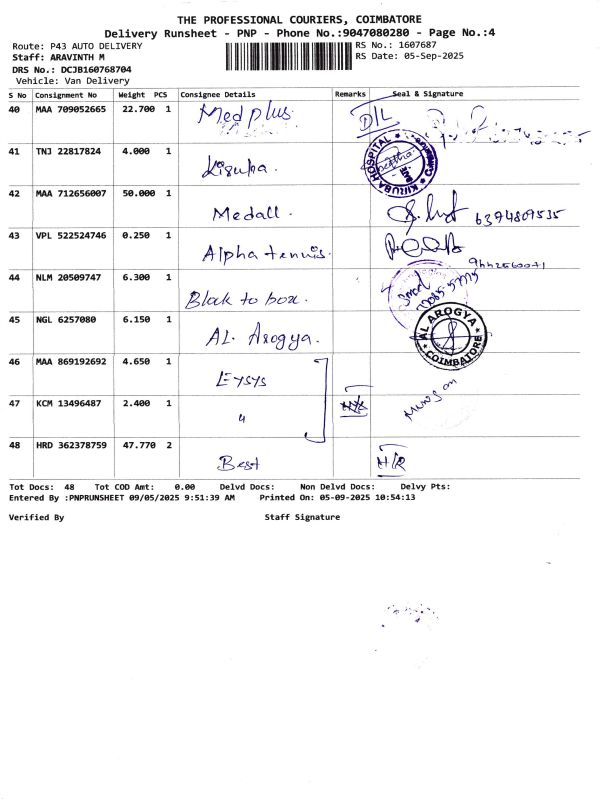 THE PROFESSIONAL COURIERS, COIMBATORE
Delivery Runsheet - PNP - Phone No.:9047080280 - Page No.:4
Route: P43 AUTO DELIVERY
RS No.: 1607687
Staff: ARAVINTH M
RS Date: 05-Sep-2025
DRS No.: DCJB160768704
Vehicle: Van Delivery
S No Consignment No Weight PCS Consignee Details Remarks Seal & Signature
40 MAA 709052665 22.700 1 Medplus D/L
41 TNJ 22817824 4.000 1 KIRUBA HOSPITAL
42 MAA 712656007 50.000 1 Medall. 6394809535
43 VPL 522524746 0.250 1 Alpha tennis.
44 NLM 20509747 6.300 1 Blak to box.
45 NGL 6257080 6.150 1 AL. Arogya. AL AROGYA COIMBATORE
46 MAA 869192692 4.650 1
47 KCM 13496487 2.400 1 "
48 HRD 362378759 47.770 2 Best H/R
Tot Docs: 48 Tot COD Amt: 0.00 Delvd Docs: Non Delvd Docs: Delvy Pts:
Entered By :PNPRUNSHEET 09/05/2025 9:51:39 AM Printed On: 05-09-2025 10:54:13
Verified By Staff Signature